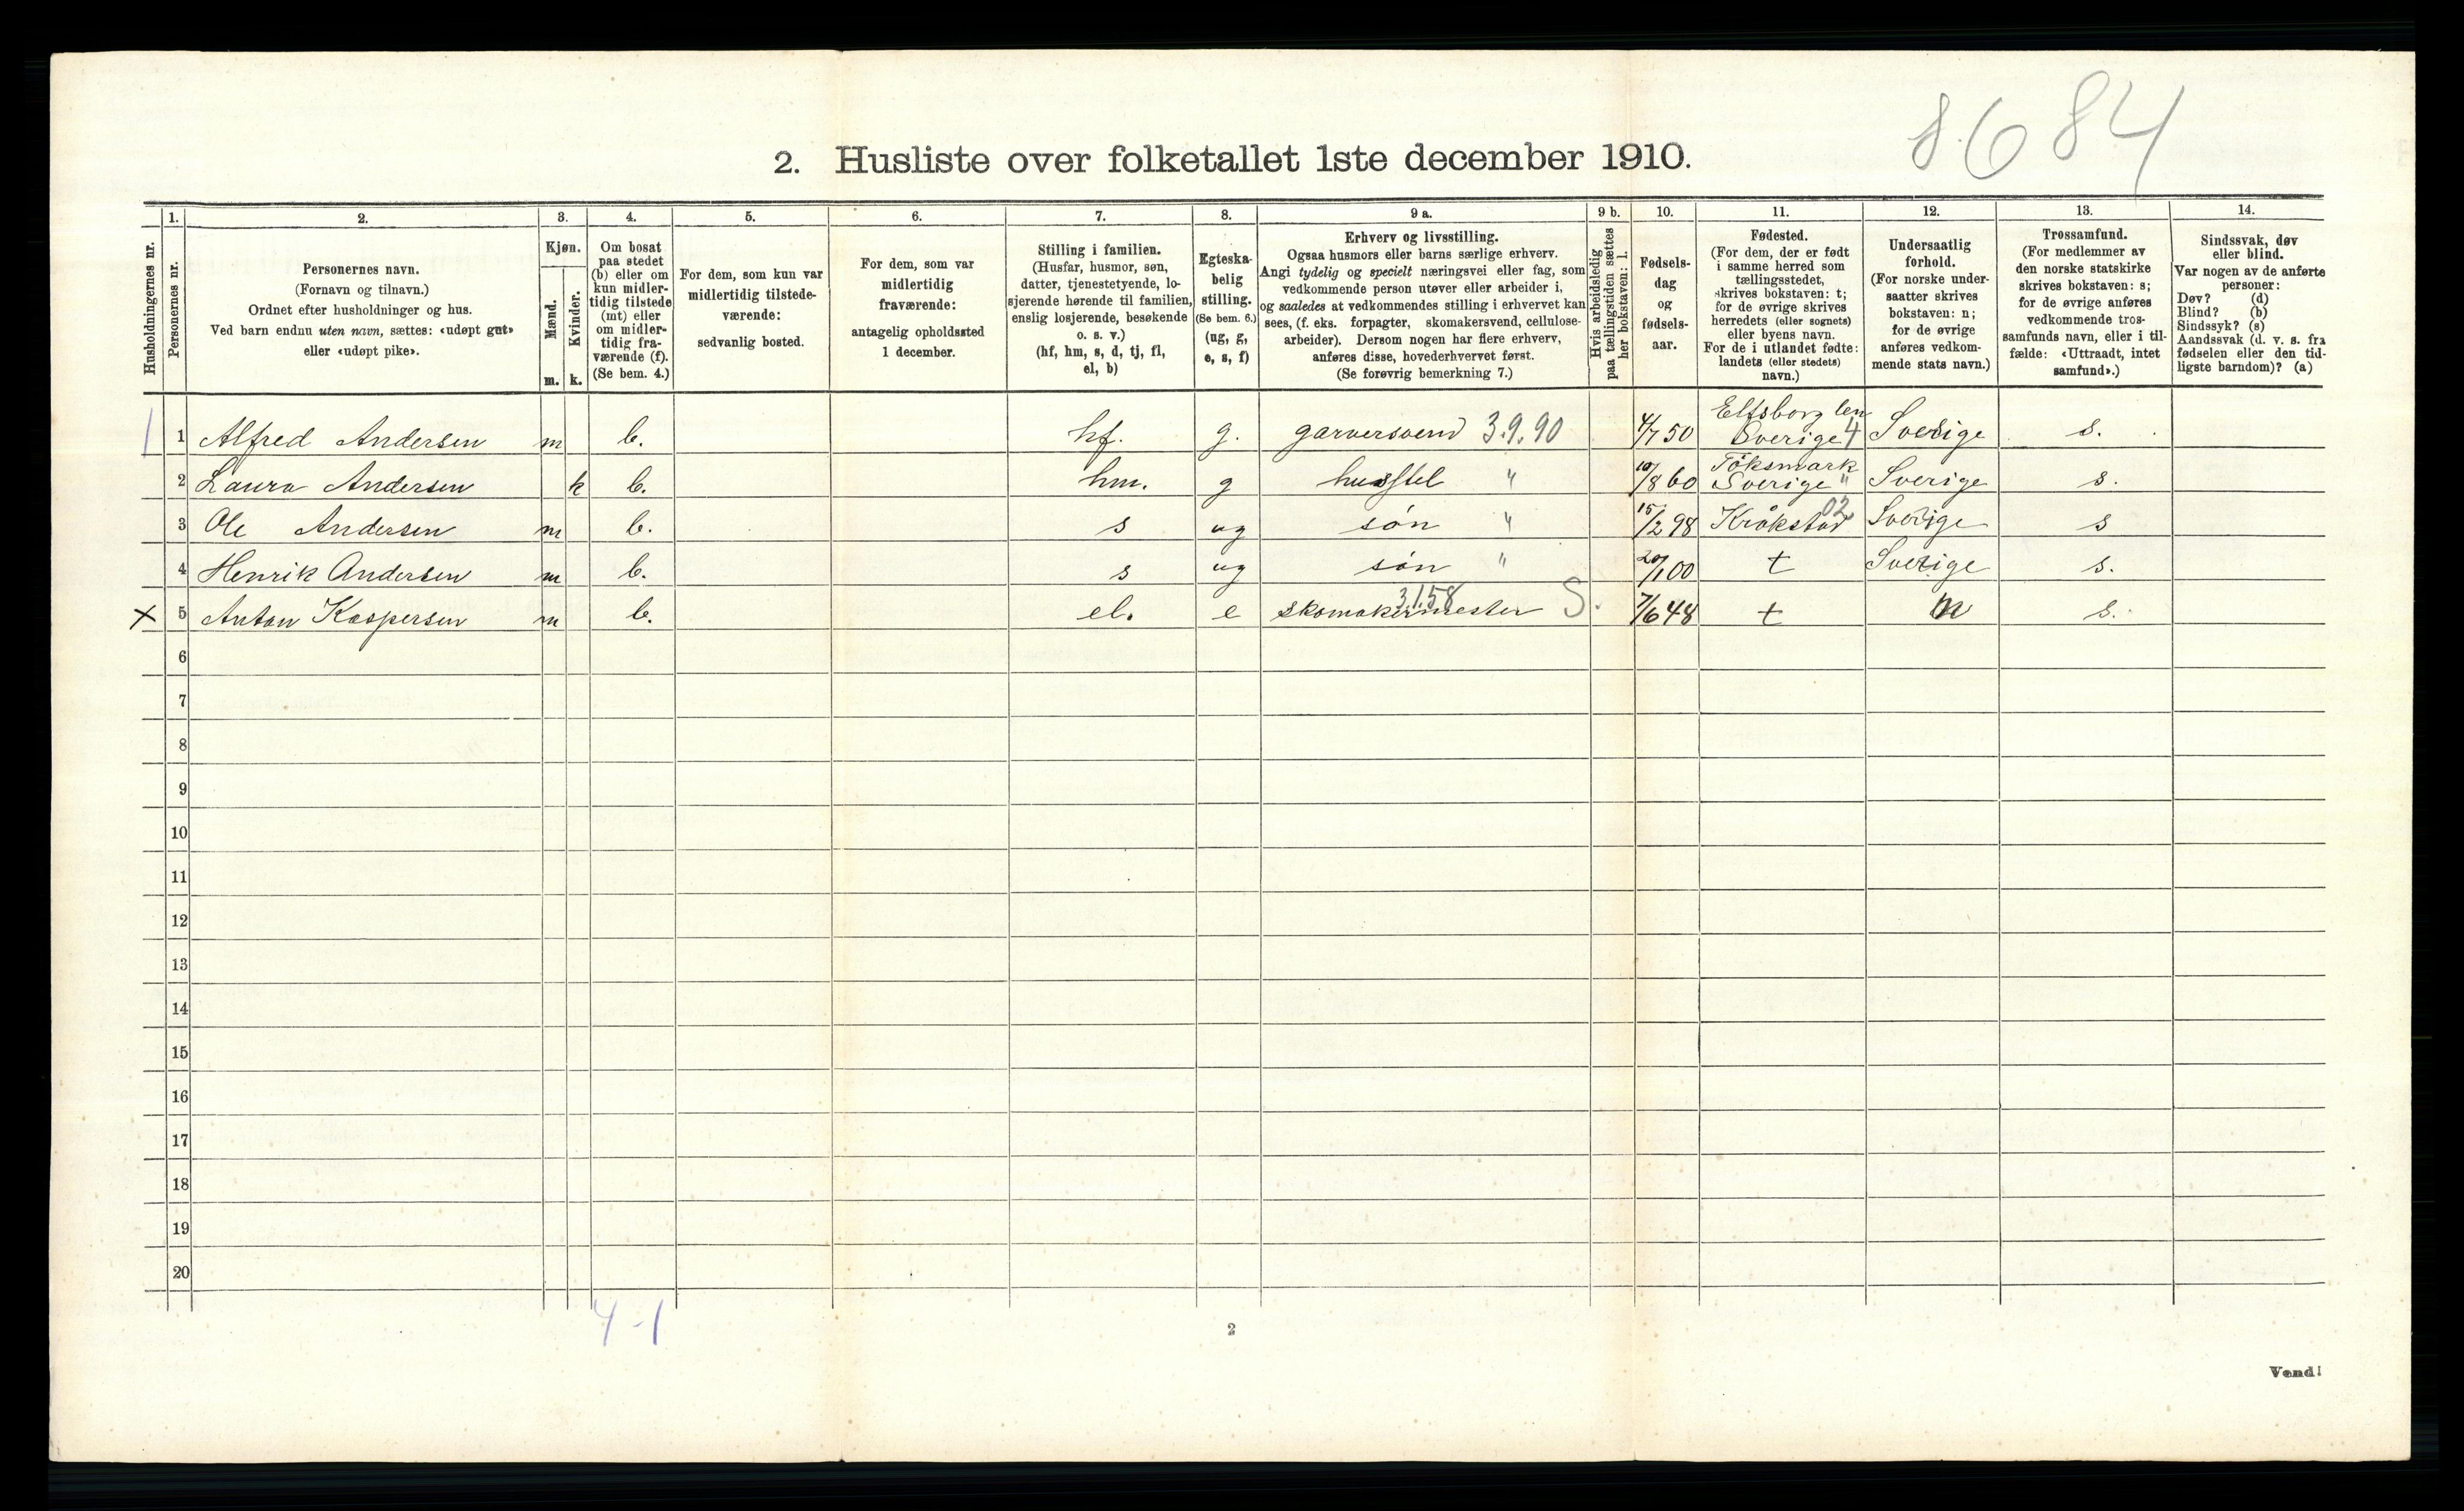 8684
2. Husliste over folketallet 1ste december 1910.
1. 2. 3. 4. 5. 6. 7. 8. 9 a. 9 b. 10. 11. 12. 13. 14.
Husholdningernes nr.
Personernes nr.
Personernes navn.
(Fornavn og tilnavn.)
Ordnet efter husholdninger og hus.
Ved barn endnu uten navn, sættes: «udøpt gut»
eller «udøpt pike».
Kjøn.
Mænd.
Kvinder.
m. k.
Om bosat
paa stedet
(b) eller om
kun midler-
tidig tilstede
(mt) eller
om midler-
tidig fra-
værende (f).
(Se bem. 4.)
For dem, som kun var
midlertidig tilstede-
værende:
sedvanlig bosted.
For dem, som var
midlertidig
fraværende:
antagelig opholdssted
1 december.
Stilling i familien.
(Husfar, husmor, søn,
datter, tjenestetyende, lo-
sjerende hørende til familien,
enslig losjerende, besøkende
o. s. v.)
(hf, hm, s, d, tj, fl,
el, b)
Egteska-
belig
stilling.
(Se bem. 6.)
(ug, g,
e, s, f)
Erhverv og livsstilling.
Ogsaa husmors eller barns særlige erhverv.
Angi tydelig og specielt næringsvei eller fag, som
vedkommende person utøver eller arbeider i,
og saaledes at vedkommendes stilling i erhvervet kan
sees, (f. eks. forpagter, skomakersvend, cellulose-
arbeider). Dersom nogen har flere erhverv,
anføres disse, hovederhvervet først.
(Se forøvrig bemerkning 7.)
Hvis arbeidsledig
paa tællingstiden sættes
her bokstaven: l.
Fødsels-
dag
og
fødsels-
aar.
Fødested.
(For dem, der er født
i samme herred som
tællingsstedet,
skrives bokstaven: t;
for de øvrige skrives
herredets (eller sognets)
eller byens navn.
For de i utlandet fødte:
landets (eller stedets)
navn.)
Undersaatlig
forhold.
(For norske under-
saatter skrives
bokstaven: n;
for de øvrige
anføres vedkom-
mende stats navn.)
Trossamfund.
(For medlemmer av
den norske statskirke
skrives bokstaven: s;
for de øvrige anføres
vedkommende tros-
samfunds navn, eller i til-
fælde: «Uttraadt, intet
samfund».)
Sindssvak, døv
eller blind.
Var nogen av de anførte
personer:
Døv? (d)
Blind? (b)
Sindssyk? (s)
Aandssvak (d. v. s. fra
fødselen eller den tid-
ligste barndom)? (a)
1 1 Alfred Andersen m b. hf. g. garversvend 3.9.90 4/7 50 Elfsborg len Sverige 4 Sverige s.
2 Laura Andersen k b. hm. g husstel " 10/8 60 Töksmark Sverige " Sverige s.
3 Ole Andersen m b. s ug søn " 15/2 98 Kråkstad 02 Sverige s
4 Henrik Andersen m b. s ug søn " 20/1 00 t Sverige s.
x 5 Anton Kaspersen m b. el. e skomakermester 3158 S. 7/6 48 t n s.
6
7
8
9
10
11
12
13
14
15
16
17
18
19
20
4-1
2
Vend!